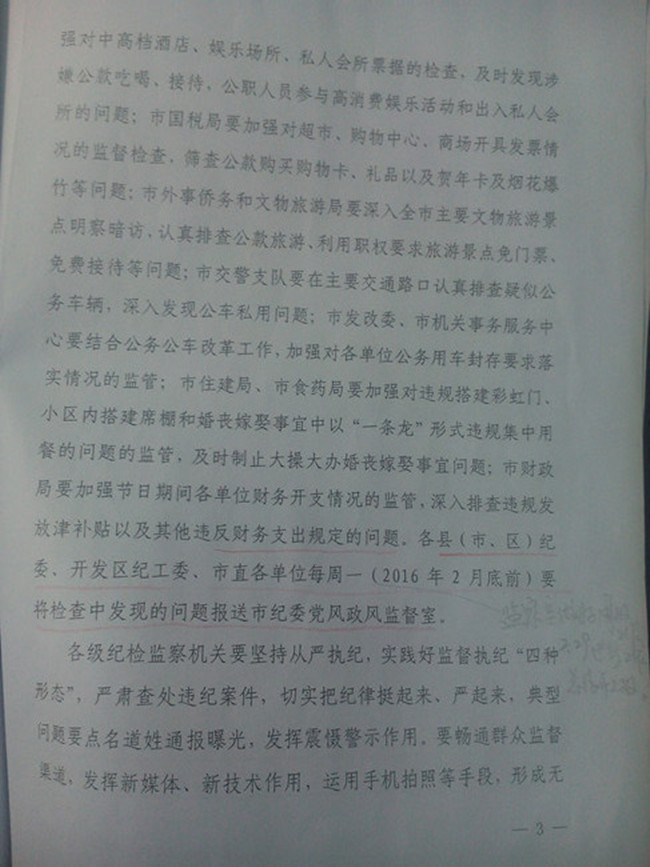 强对中高档酒店、娱乐场所、私人会所票据的检查，及时发现涉
嫌公款吃喝、接待，公职人员参与高消费娱乐活动和出入私人会
所的问题；市国税局要加强对超市、购物中心、商场开具发票情
况的监督检查，筛查公款购买购物卡、礼品以及贺年卡及烟花爆
竹等问题；市外事侨务和文物旅游局要深入全市主要文物旅游景
点明察暗访，认真排查公款旅游、利用职权要求旅游景点免门票、
免费接待等问题；市交警支队要在主要交通路口认真排查疑似公
务车辆，深入发现公车私用问题；市发改委、市机关事务服务中
心要结合公务公车改革工作，加强对各单位公务用车封存要求落
实情况的监管；市住建局、市食药局要加强对违规搭建彩虹门、
小区内搭建席棚和婚丧嫁娶事宜中以“一条龙”形式违规集中用
餐的问题的监管，及时制止大操大办婚丧嫁娶事宜问题；市财政
局要加强节日期间各单位财务开支情况的监管，深入排查违规发
放津补贴以及其他违反财务支出规定的问题。各县（市、区）纪
委、开发区纪工委、市直各单位每周一（2016 年 2 月底前）要
将检查中发现的问题报送市纪委党风政风监督室。
各级纪检监察机关要坚持从严执纪，实践好监督执纪“四种
形态”，严肃查处违纪案件，切实把纪律挺起来、严起来，典型
问题要点名道姓通报曝光，发挥震慑警示作用。要畅通群众监督
渠道，发挥新媒体、新技术作用，运用手机拍照等手段，形成无
— 3 —